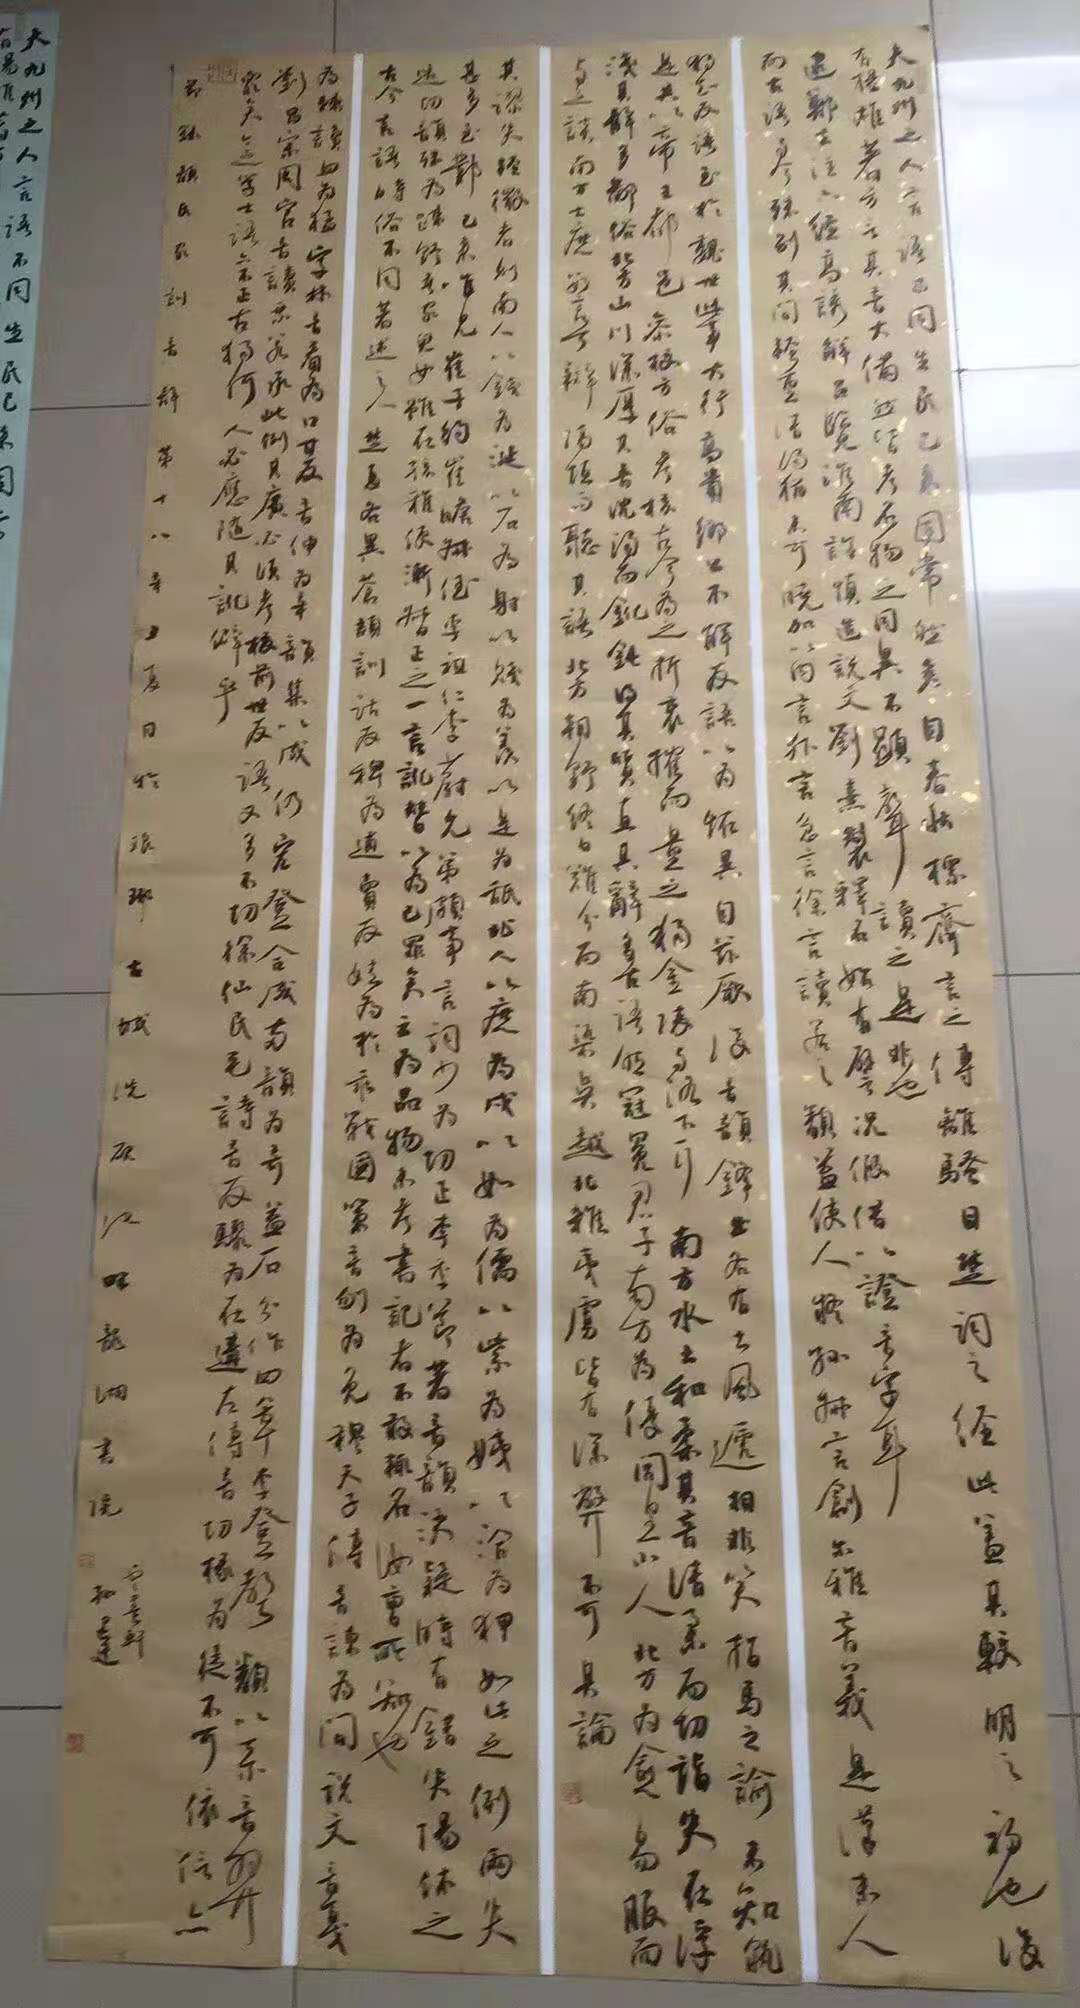 夫九州之人言語不同生民已來固常然矣自春秋標齊言之傳離騷目楚詞之經此蓋其較明之初也後
有楊雄著方言其言大備然皆考名物之同異不顯聲讀之是非也
逮鄭玄注六經高誘解呂覽淮南許慎造說文劉熹製釋名始有譬況假借以證音字耳
而古語與今殊別其間輕重清濁猶未可曉加以內言外言急言徐言讀若之類益使人疑孫叔言創爾雅音義是漢末人
獨知反語至於魏世此事大行高貴鄉公不解反語以為怪異自茲厥後音韻鋒出各有土風遞相非笑指馬之諭未知孰
是共以帝王都邑參校方俗考核古今為之折衷搉而量之獨金陵與洛下耳南方水土和柔其音清舉而切詣失在浮
淺其辭多鄙俗北方山川深厚其音沈濁而鈋鈍得其質直其辭多古語然冠冕君子南方為優閭里小人北方為愈易服而
與之談南方士庶數言可辯隔垣而聽其語北方朝野終日難分而南染吳越北雜夷虜皆有深弊不可具論
其謬失輕微者則南人以錢為涎以石為射以賤為羨以是為舐北人以庶為戍以如為儒以紫為姊以洽為狎如此之例兩失
甚多至鄴已來唯見崔子約崔瞻叔侄李祖仁李蔚兄弟頗事言詞少為切正李季節著音韻決疑時有錯失陽休之
造切韻殊為疎野吾家兒女雖在孩稚便漸督正之一言訛替以為己罪矣云為品物未考書記者不敢輒名汝曹所知也
古今言語時俗不同著述之人楚夏各異蒼頡訓詁反稗為逋賣反娃為於乖戰國策音刎為免穆天子傳音諫為間說文音戛
為棘讀皿為猛字林音看為口甘反音伸為辛韻集以成仍宏登合成兩韻為奇益石分作四章李登聲類以系音羿
劉昌宗周官音讀乘若承此例甚廣必須考校前世反語又多不切徐仙民毛詩音反驟為在遘左傳音切椽為徒緣不可依信亦
為眾矣今之學士語亦不正古獨何人必應隨其訛僻乎
節錄顏氏家訓音辭第十八辛丑夏日於琅琊古城洗硯江畔龍湖書院
孫建
夫九州之人言語不同生民已來固